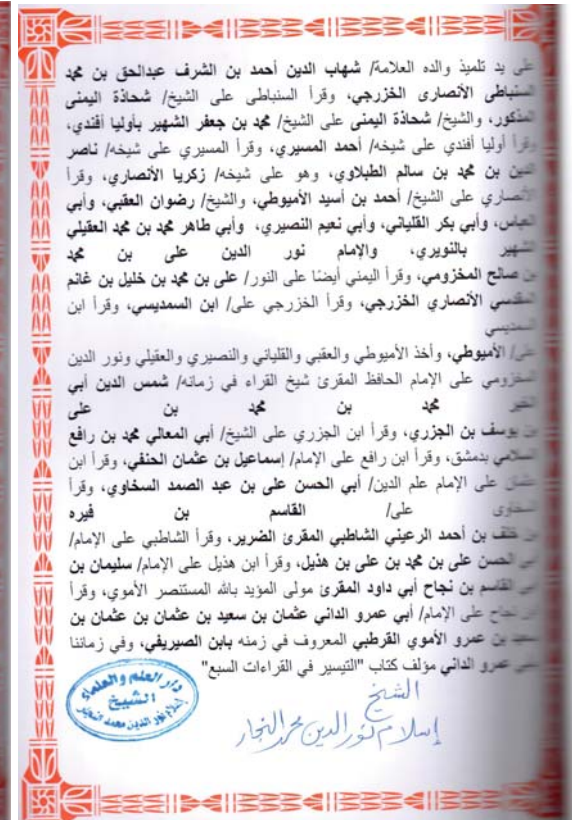 على يد تلميذ والده العلامة/ شهاب الدين أحمد بن الشرف عبدالحق بن محمد
السنباطى الأنصارى الخزرجي، وقرأ السنباطى على الشيخ/ شحاذة اليمنى
المذكور، والشيخ/ شحاذة اليمنى على الشيخ/ محمد بن جعفر الشهير بأوليا أفندي،
وقرأ أوليا أفندي على شيخه/ أحمد المسيري، وقرأ المسيري على شيخه/ ناصر
الدين بن محمد بن سالم الطبلاوي، وهو على شيخه/ زكريا الأنصاري، وقرأ
الأنصاري على الشيخ/ أحمد بن أسيد الأميوطي، والشيخ/ رضوان العقبي، وأبي
العباس، وأبي بكر القلياني، وأبي نعيم النصيري، وأبي طاهر محمد بن محمد العقيلي
الشهير بالنويري، والإمام نور الدين على بن محمد
بن صالح المخزومي، وقرأ اليمني أيضًا على النور/ على بن محمد بن خليل بن غانم
المقدسي الأنصاري الخزرجي، وقرأ الخزرجي على/ ابن السمديسي، وقرأ ابن
السمديسي
على/ الأميوطي، وأخذ الأميوطي والعقبي والقلياني والنصيري والعقيلي ونور الدين
المخزومي على الإمام الحافظ المقرئ شيخ القراء في زمانه/ شمس الدين أبي
الخير محمد بن محمد بن على
بن يوسف بن الجزري، وقرأ ابن الجزري على الشيخ/ أبي المعالي محمد بن رافع
السلامي بدمشق، وقرأ ابن رافع على الإمام/ إسماعيل بن عثمان الحنفي، وقرأ ابن
عثمان على الإمام علم الدين/ أبي الحسن على بن عبد الصمد السخاوي، وقرأ
السخاوى على/ القاسم بن فيره
بن خلف بن أحمد الرعيني الشاطبي المقرئ الضرير، وقرأ الشاطبي على الإمام/
أبي الحسن على بن محمد بن على بن هذيل، وقرأ ابن هذيل على الإمام/ سليمان بن
أبي القاسم بن نجاح أبي داود المقرئ مولى المؤيد بالله المستنصر الأموي، وقرأ
ابن نجاح على الإمام/ أبي عمرو الداني عثمان بن سعيد بن عثمان بن عثمان بن
سعيد بن عمرو الأموي القرطبي المعروف في زمنه بابن الصيريفي، وفي زماننا
بأبي عمرو الداني مؤلف كتاب "التيسير في القراءات السبع"
دار العلم والعلماء
الشيخ
إسلام نور الدين محمد النجار
الشيخ
إسلام نور الدين محمد النجار